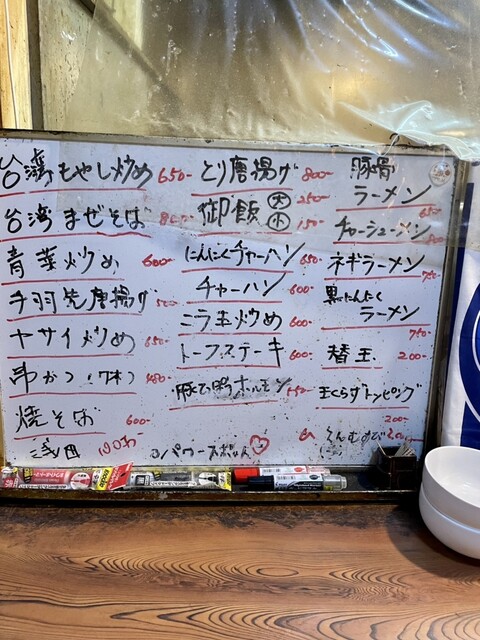 台湾もやし炒め 650-
台湾まぜそば
青菜炒め 600-
手羽先唐揚げ 500
ヤサイ炒め 650-
串かつ
焼そば 600-
とり唐揚げ 800-
御飯 大 250-
小 150-
にんにくチャーハン 650-
チャーハン 600-
ニラ玉炒め 600-
トーフステーキ 600-
ホルモン
パワースポット♡
豚骨
ラーメン 650-
チャーシューメン
ネギラーメン 750-
黒にんにく
ラーメン 750-
替玉 200-
トッピング
200-